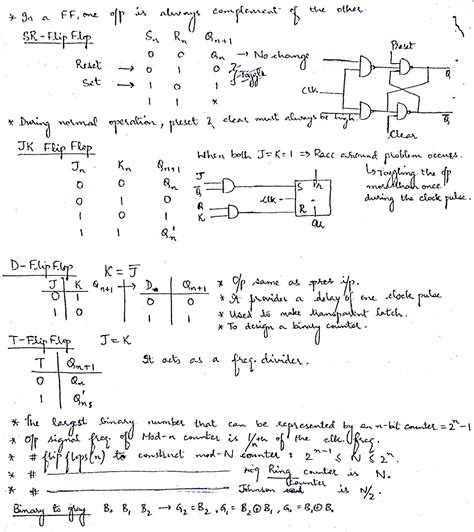 * In a FF, one o/p is always complement of the other.
SR-Flip Flop
Sn Rn Qn+1
0 0 Qn → No change
Reset → 0 1 0
Set → 1 0 1
Toggle
1 1 *
Preset
Clk
Q
Q̄
Clear
* During normal operation, preset & clear must always be high.
JK Flip Flop
Jn Kn Qn+1
0 0 Qn
0 1 0
1 0 1
1 1 Qn'
When both J=K=1 ⇒ Race around problem occurs.
↳ toggling the o/p
more than once
during the clock pulse.
J
Q̄
Q
K
S Pr
Clk
R
Clr
D-Flip Flop K = J̄
J K Qn+1 → D Qn+1
0 1 0 0 0
1 0 1 1 1
* O/p same as pres i/p.
* It provides a delay of one clock pulse
* Used to make transparent latch.
* To design a binary counter.
T-Flip Flop J=K
T Qn+1
0 Qn
1 Qn'
It acts as a freq. divider.
* The largest binary number that can be represented by an n-bit counter = 2ⁿ-1
* O/p signal freq. of Mod-n counter is 1/nth of the clk freq.
* # flip flops(n) to construct mod-N counter : 2ⁿ⁻¹ ≤ N ≤ 2ⁿ.
* # Ring counter is N.
* # Johnson is N/2.
Binary to gray B₀ B₁ B₂ → G₂=B₂, G₁=B₂⊕B₁, G₀=B₁⊕B₀